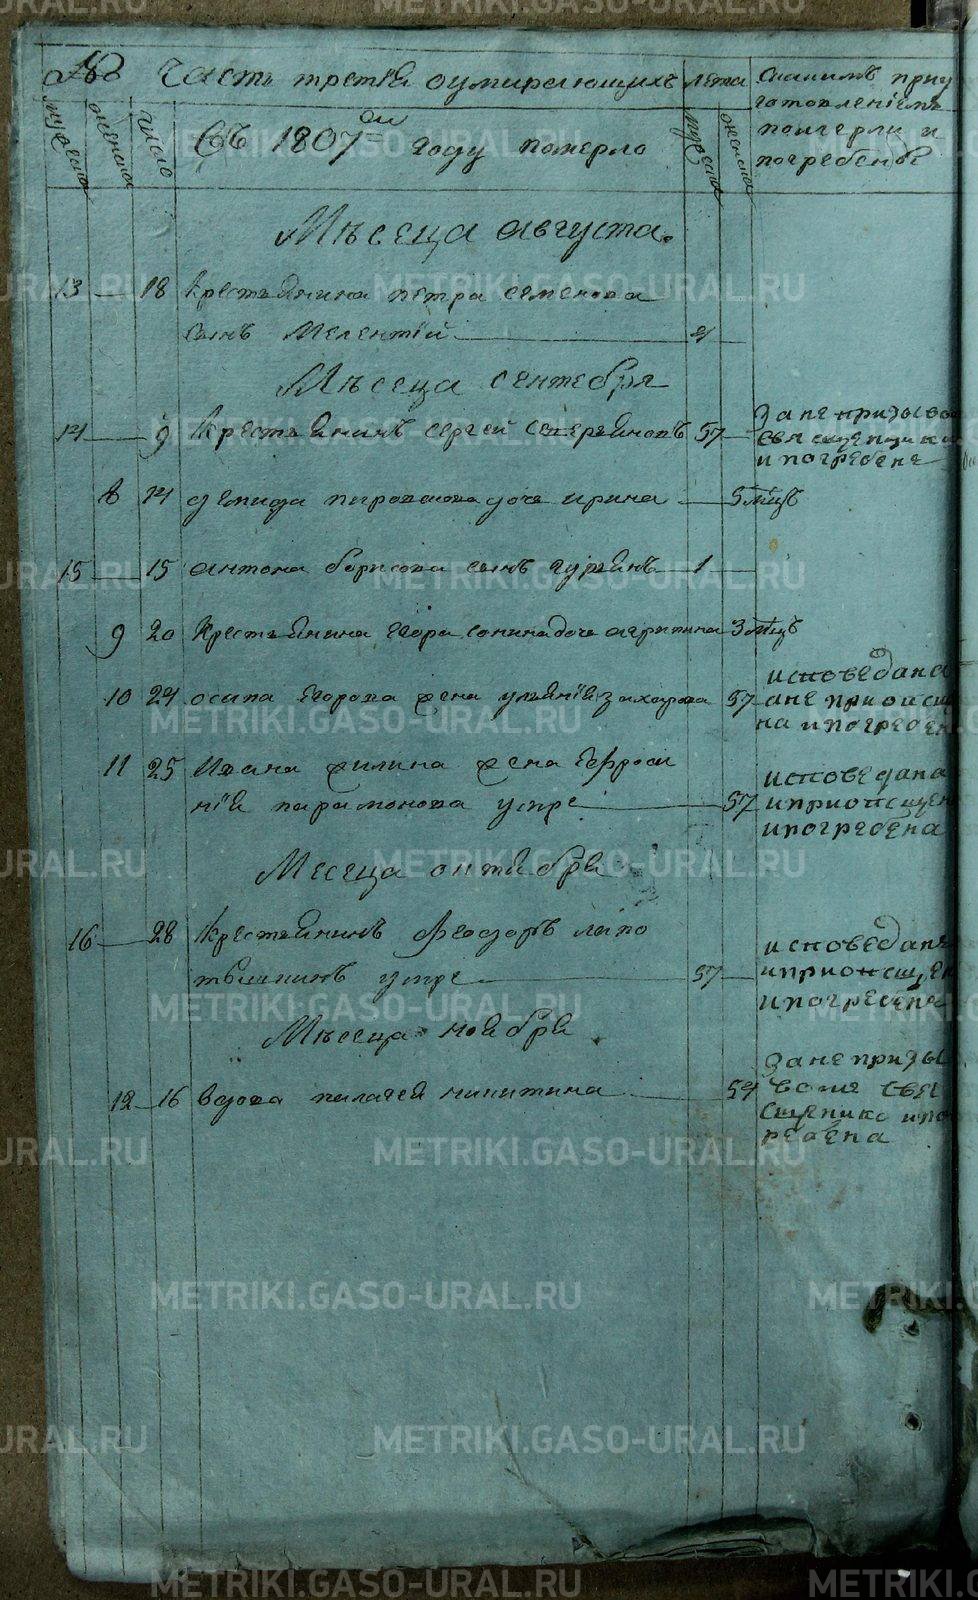 Часть третія оумирающихъ
лета
снакимъ приу
готовленіемъ
померли и
погребены
мужеска
женска
число
Въ 1807 ом году померло
мужеска
женска
Мѣсеца августа.
13 18 Крестьянина петра семенова
сынъ Мелентій
Мѣсеца сентебря
14 9 Крестьянинъ сергей 57
за не призывом
священника
и погребенъ
8 14 демида дочь ирина 5 мцъ
15 15 антона борисова сынъ гурьянъ 1
9 20 Крестьянина Егора дочь 3 мцъ
10 24 осипа Егорова жена улияния захарова 57
исповедана
а не приобще
на и погребен
11 25 Ивана жилина жена Ефроси
нія парамонова умре 57
исповедана
и приобщен
и погребена
Месеца октября
16 28 Крестьянинъ Феодоръ лапо
тышнинъ умре 57
исповеданъ
и приобщен
и погребенъ
Мѣсеца ноября
12 16 вдова палагея никитина 54
за не призы
вомъ свя
щеника и пог
ребена
METRIKI.GASO-URAL.RU